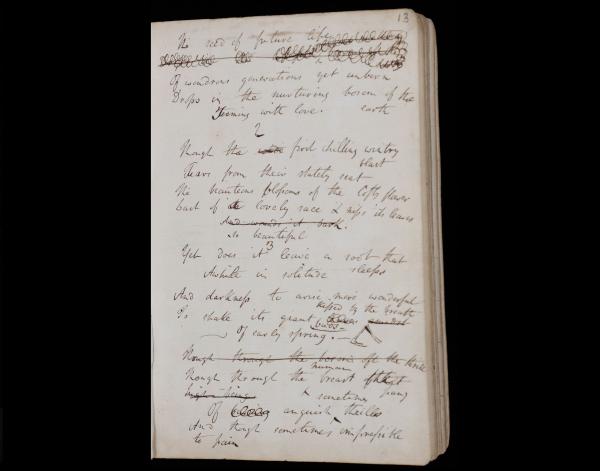 13
The seed of future life
Of wondrous generations yet unborn
Drops in the nurturing bosom of the
Teeming with love. earth
2
Though the frost chilling wintry
blast
Tears from their stately seat
The beauteous blossoms of the lofty flower
Last of a lovely race & nips its leaves
And wounds its bark.
So beautiful
3
Yet does it leave a root that
Awhile in solitude sleeps
And darkness, to arise more wonderful
kissed by the breath
To shake its giant
Of early spring. —
Though through the bosom of the
Though through the human breast that
sometimes pang
Of anguish thrills
And though sometimes impossible
to pain